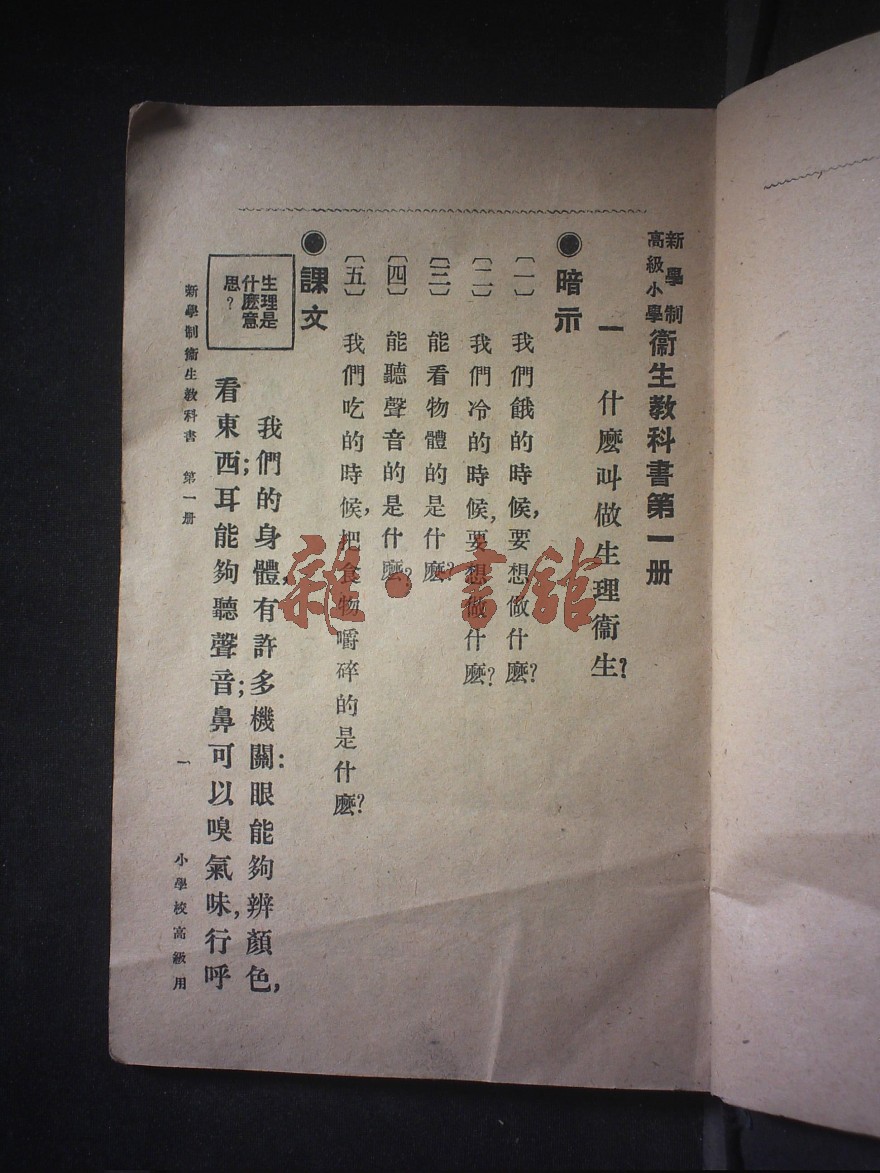 新學制
高級小學
衞生教科書第一册
一 什麽叫做生理衞生?
●暗示
〔一〕 我們餓的時候,要想做什麽?
〔二〕 我們冷的時候,要想做什麽?
〔三〕 能看物體的是什麽?
〔四〕 能聽聲音的是什麽?
〔五〕 我們吃的時候,把食物嚼碎的是什麽?
●課文
生理是
什麽意
思?
我們的身體,有許多機關:眼能夠辨顏色,
看東西;耳能夠聽聲音;鼻可以嗅氣味,行呼
新學制衞生教科書 第一册 一 小學校高級用
雜·書舘